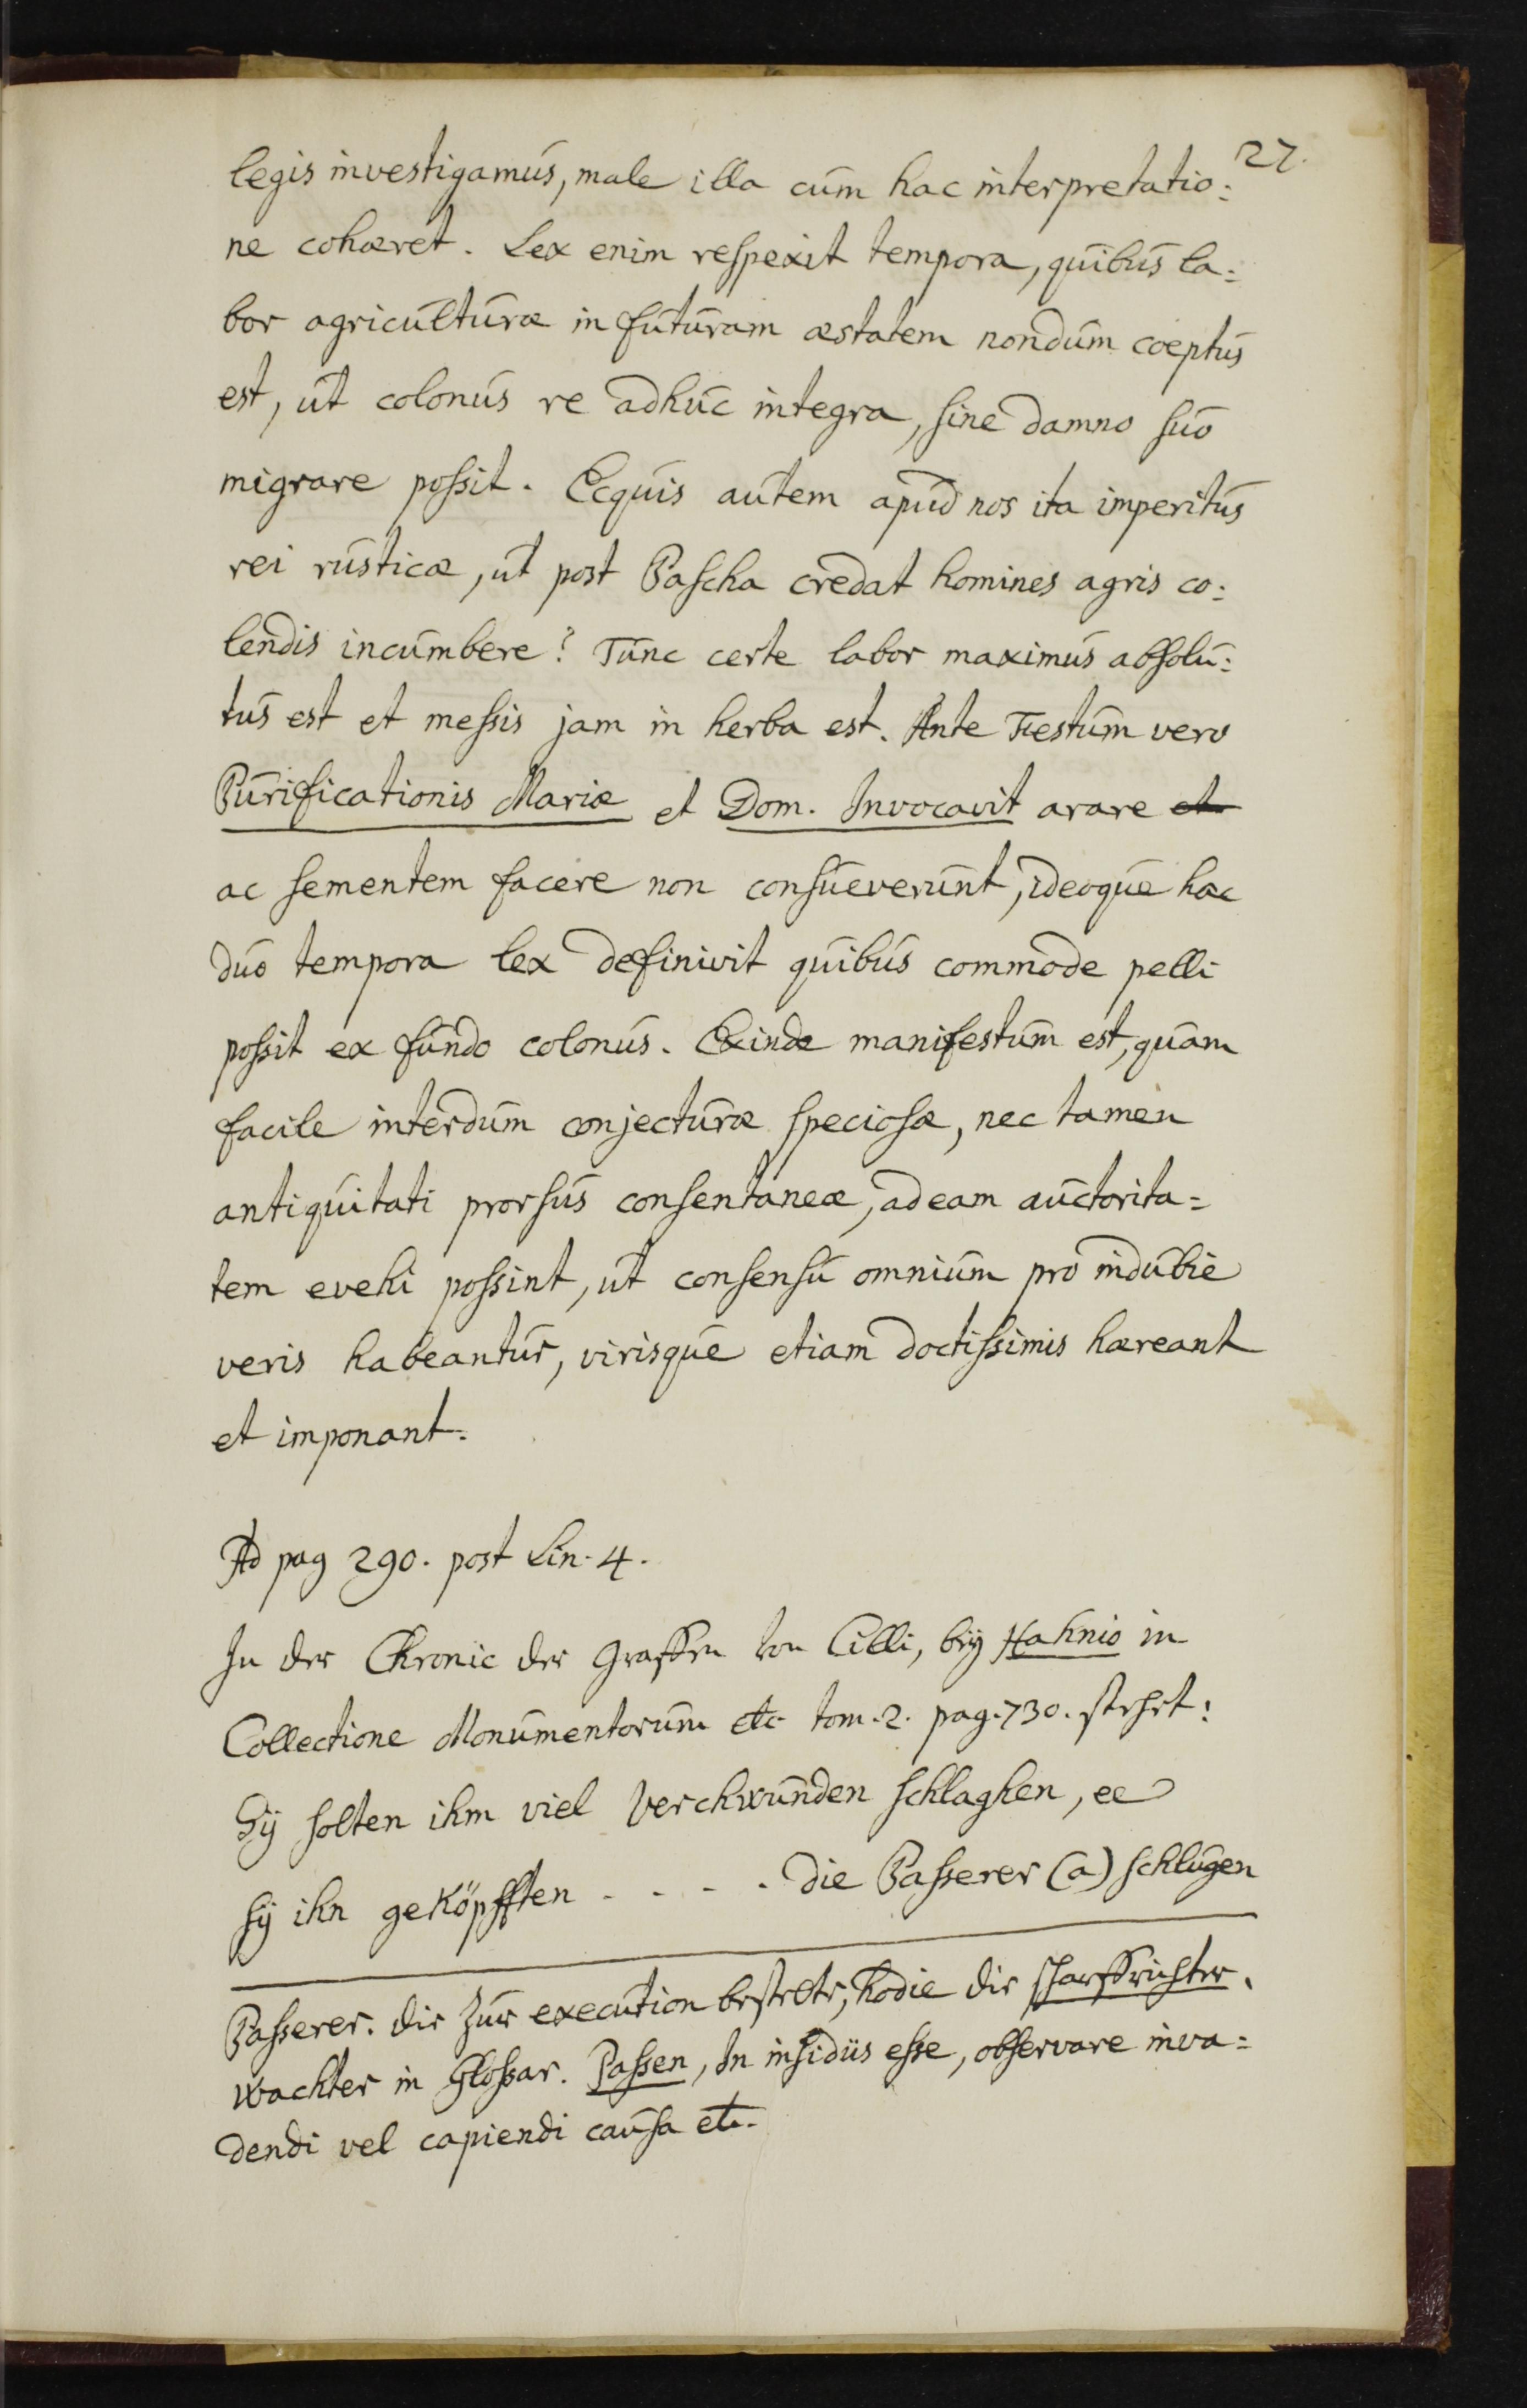 27.
legis investigamus, male illa cum hac interpretatio:
ne cohæret. Lex enim respexit tempora, quibus la:
bor agriculturæ in futuram æstatem nondum coeptus
est, ut colonus re adhuc integra, sine damno suo
migrare possit. Ecquis autem apud nos ita imperitus
rei rusticæ, ut post Pascha credat homines agris co:
lendis incumbere? Tunc certe labor maximus absolu:
tus est et messis jam in herba est. Ante Festum vero
Purificationis Mariæ et Dom. Invocavit arare et
ac sementem facere non consueverunt, ideoque hæc
duo tempora lex definivit quibus commode pelli
possit ex fundo colonus. Exinde manifestum est, quam
facile interdum conjecturæ speciosæ, nec tamen
antiquitati prorsus consentaneæ, ad eam auctorita=
tem evehi possint, ut consensu omnium pro indubie
veris habeantur, virisque etiam doctissimis hæreant
et imponant.
Ad pag 290. post Lin. 4.
In der Chronic der Graffen von Cilli, bey Hahnio in
Collectione Monumentorum etc tom. 2. pag. 730. stehet:
Sÿ solten ihm viel Verchwunden schlaghen, ee
sÿ ihn geköpfften - - - . die Passerer (a) schlugen
Passerer. die zur execution bestelte, hodie die scharffrichter.
Wachter in Glossar. Passen, In insidiis esse, observare inva=
dendi vel capiendi causa etc.